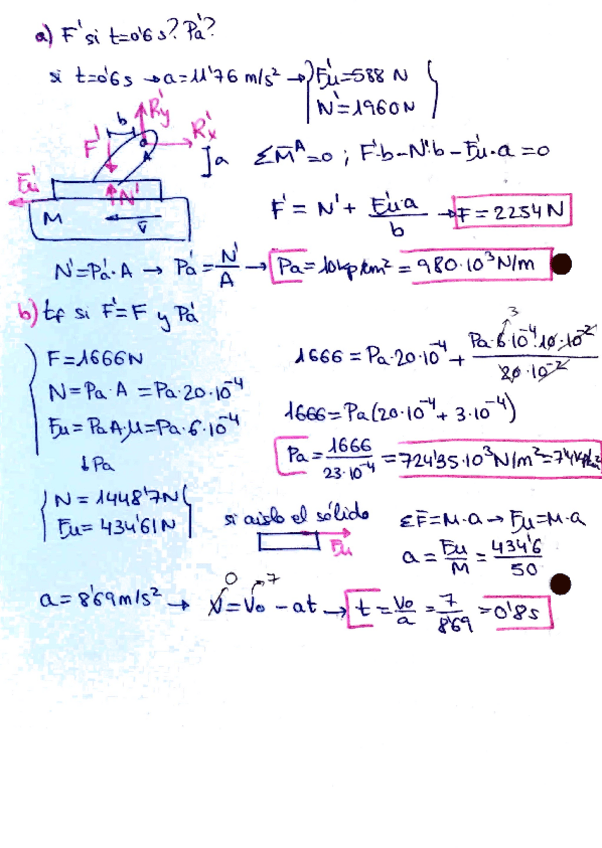 a) F' si t=0'6 s? Pa'?
si t=0'6 s → a=11'76 m/s² → Fu'=588 N
N'=1960N
b Ry' Rx' F' A a
ΣM^A=0 ; F'·b-N'·b-Fu'·a=0
Fu' N' M v
F' = N' + Fu'·a/b → F=2254N
N'=Pa'·A → Pa'=N'/A → Pa=10kp/cm² = 980·10³N/m
b) tf si F'=F y Pa'
F=1666N
N=Pa·A =Pa·20·10⁻⁴
Fu=Pa·A·μ=Pa·6·10⁻⁴
↓Pa
1666=Pa·20·10⁻⁴+ Pa·6·10⁻⁴·10·10⁻²/20·10⁻² 3
1666=Pa(20·10⁻⁴+3·10⁻⁴)
Pa=1666/23·10⁻⁴=724'35·10³N/m²=7'4kp/cm²
N=1448'7N
Fu=434'61N
si aislo el sólido
Fu
ΣF=M·a→Fu=M·a
a=Fu/M=434'6/50
a=8'69m/s² → V=Vo-at → t=Vo/a=7/8'69=0'8s
0 7